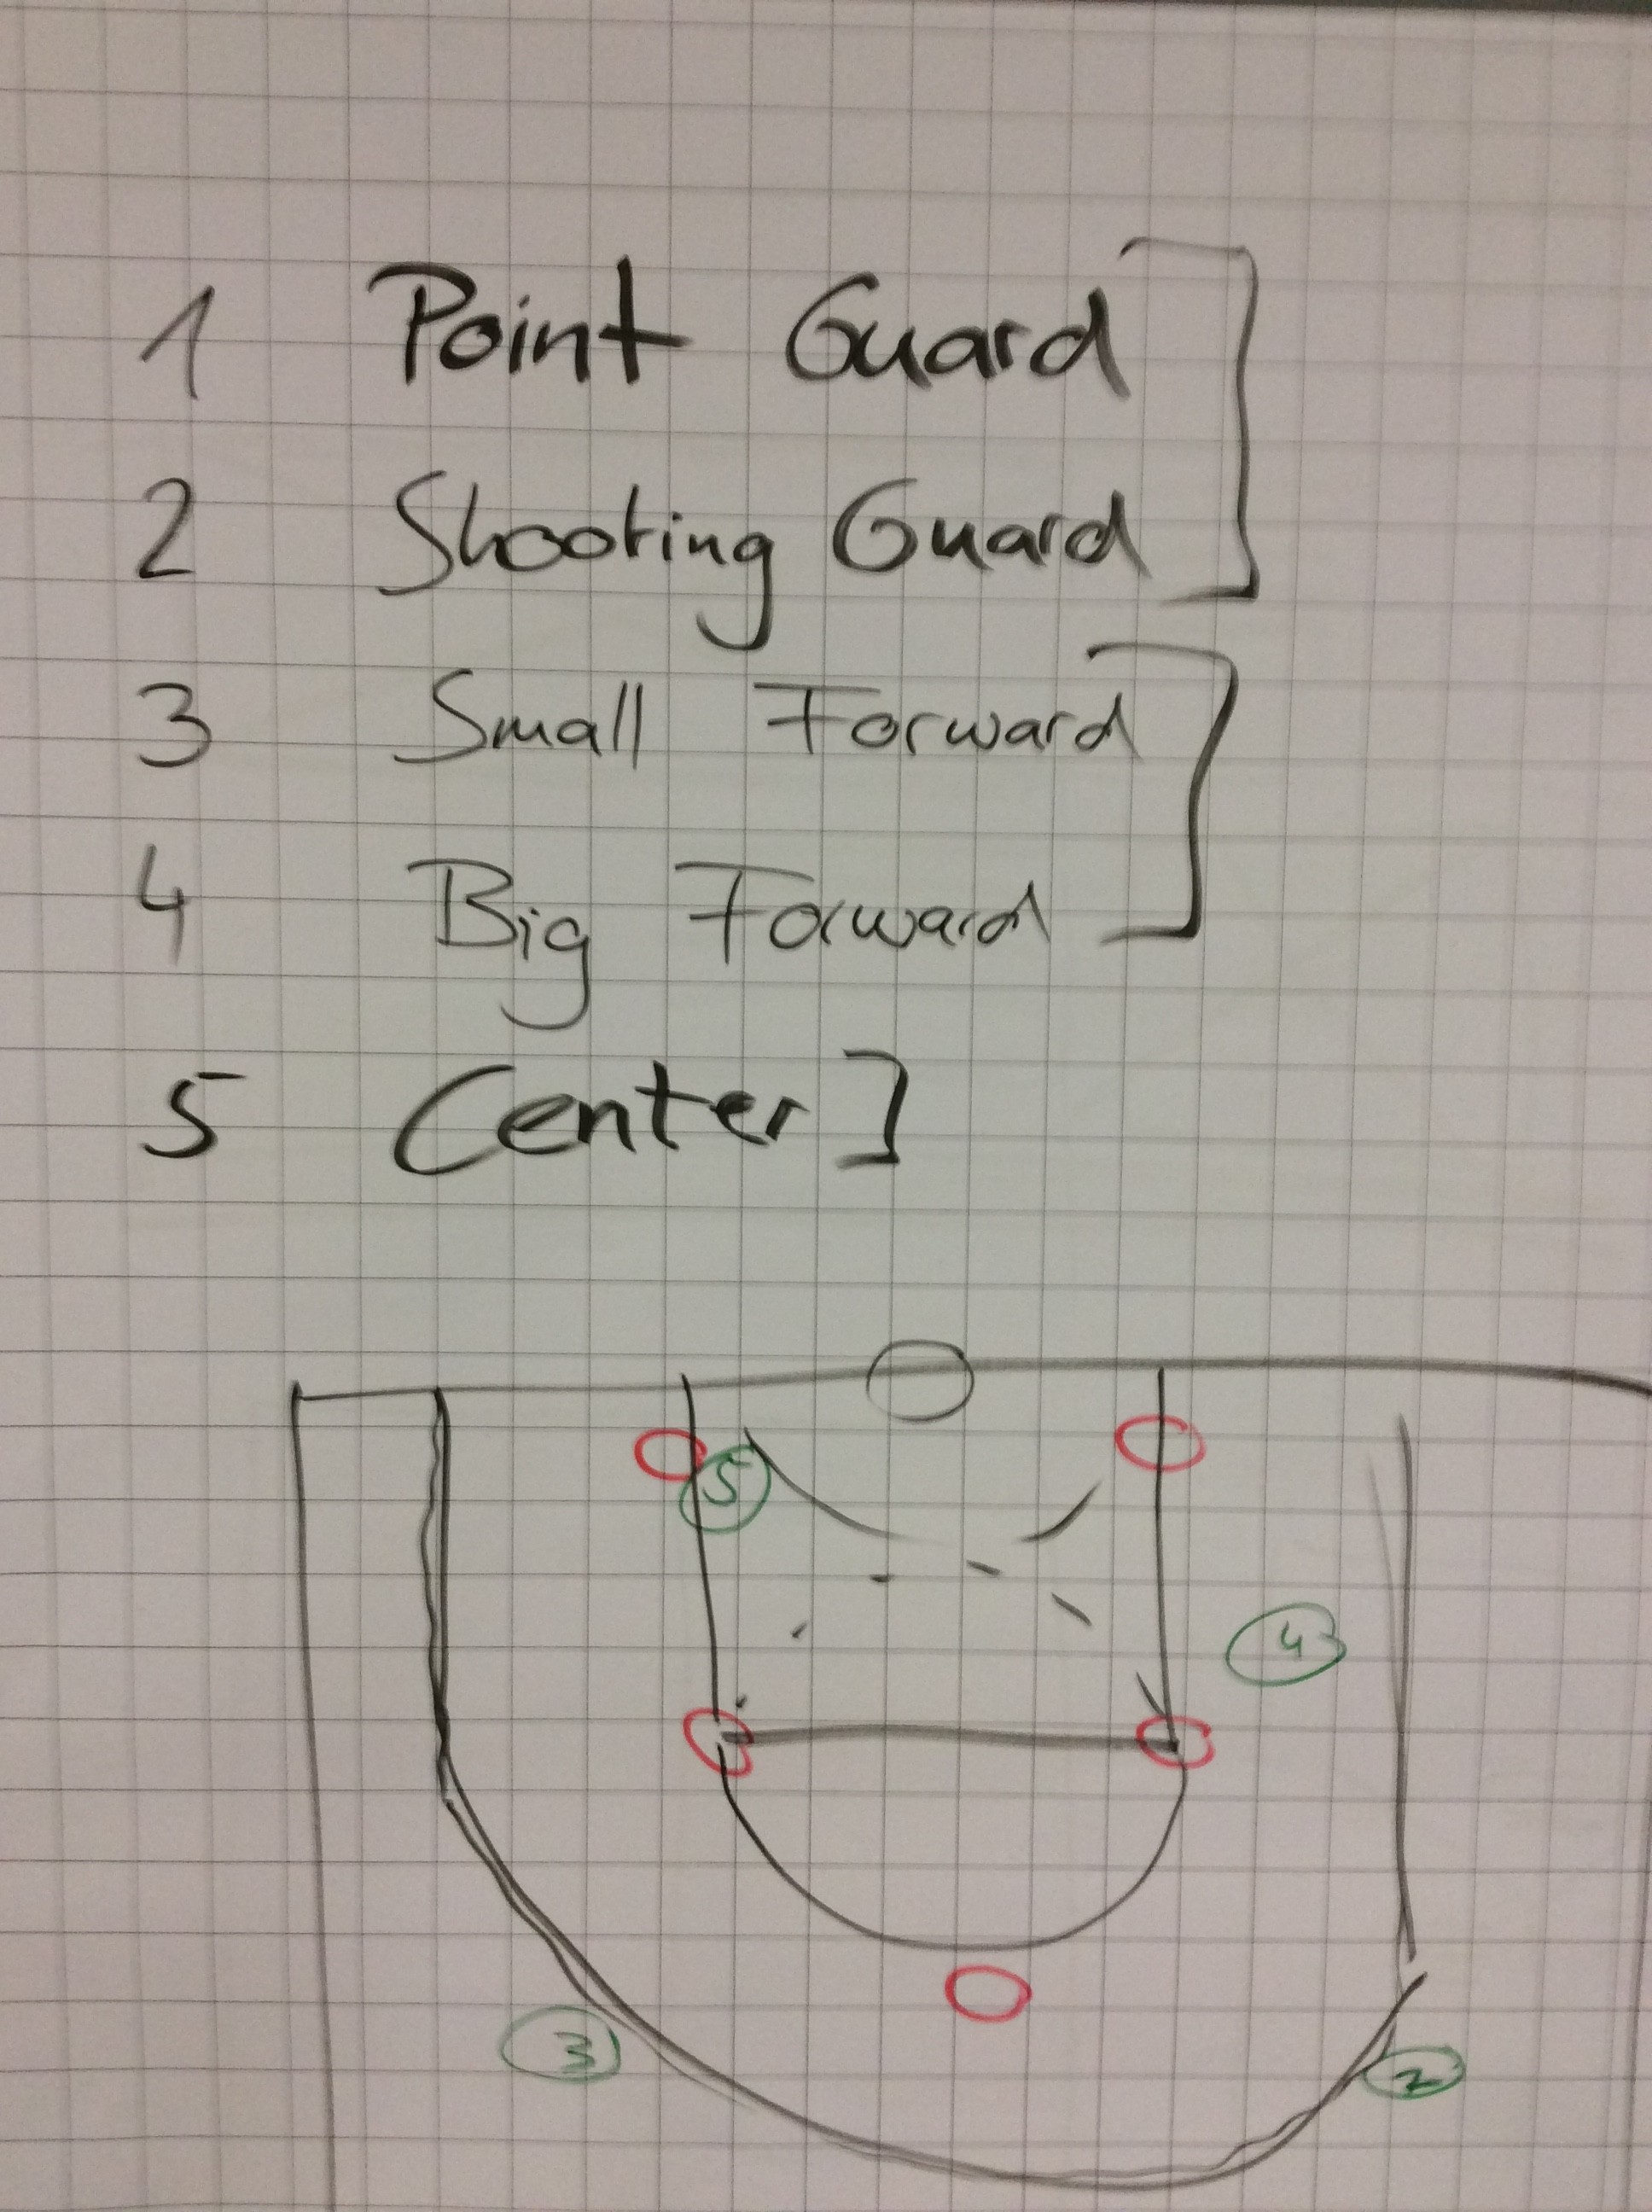 1 Point Guard
2 Shooting Guard
3 Small Forward
4 Big Forward
5 Center
5
4
3
2